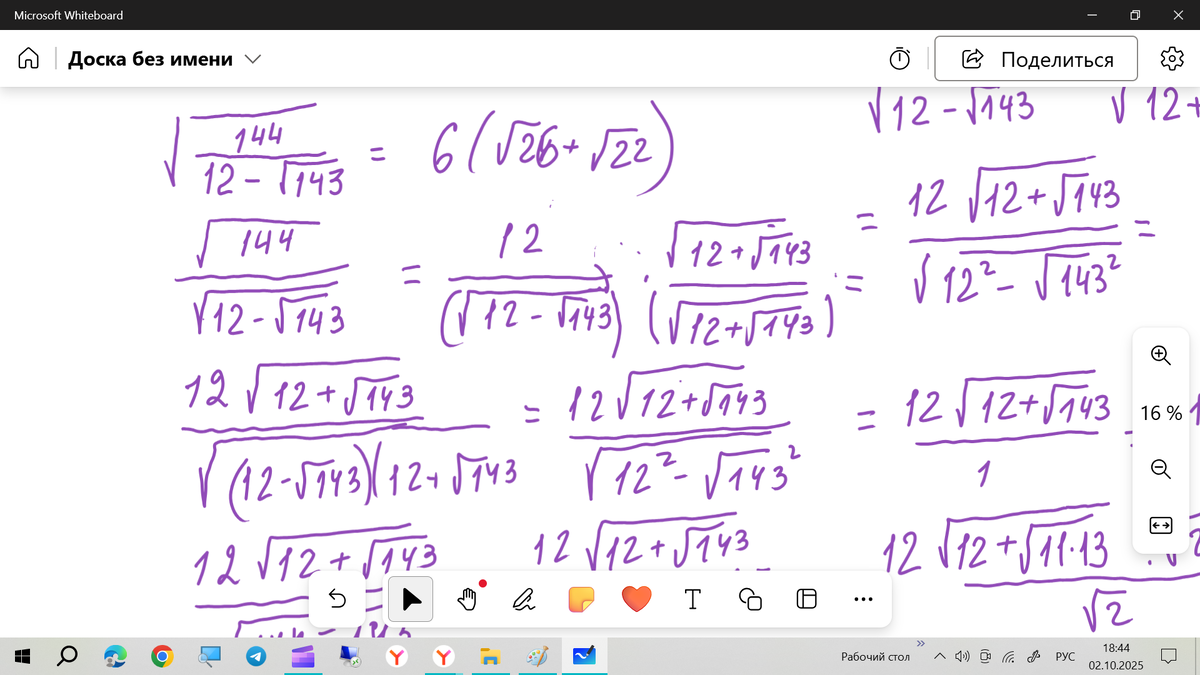 Microsoft Whiteboard
Доска без имени
Поделиться
√(144/(12 - √143)) = 6(√26 + √22)
√12 - √143 √12+
√144/√(12 - √143) = 12/(√(12 - √143)) · √(12+√143)/(√(12+√143)) = 12√(12+√143)/√(12² - √143²) =
12√(12+√143)/√((12-√143)(12+√143) = 12√(12+√143)/√(12² - √143²) = 12√(12+√143)/1
16 %
12√(12+√143) 12√(12+√143) 12√(12+√11·13) · √2/√2
T
Рабочий стол
РУС
18:44
02.10.2025